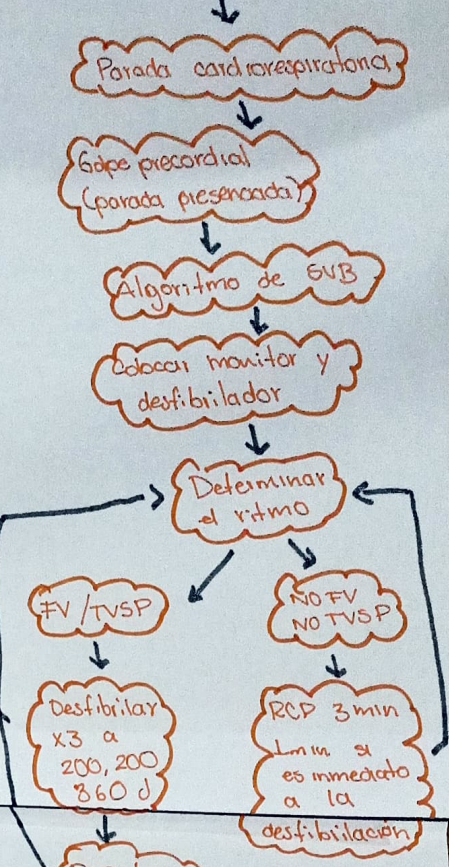 Parada cardiorespiratoria
Golpe precordial
(parada presenciada)
Algoritmo de SVB
Colocar monitor y
desfibrilador
Determinar
el ritmo
FV/TVSP
NO FV
NO TVSP
Desfibrilar
x3 a
200, 200
360 J
RCP 3min
1min si
es inmediato
a la
desfibilación